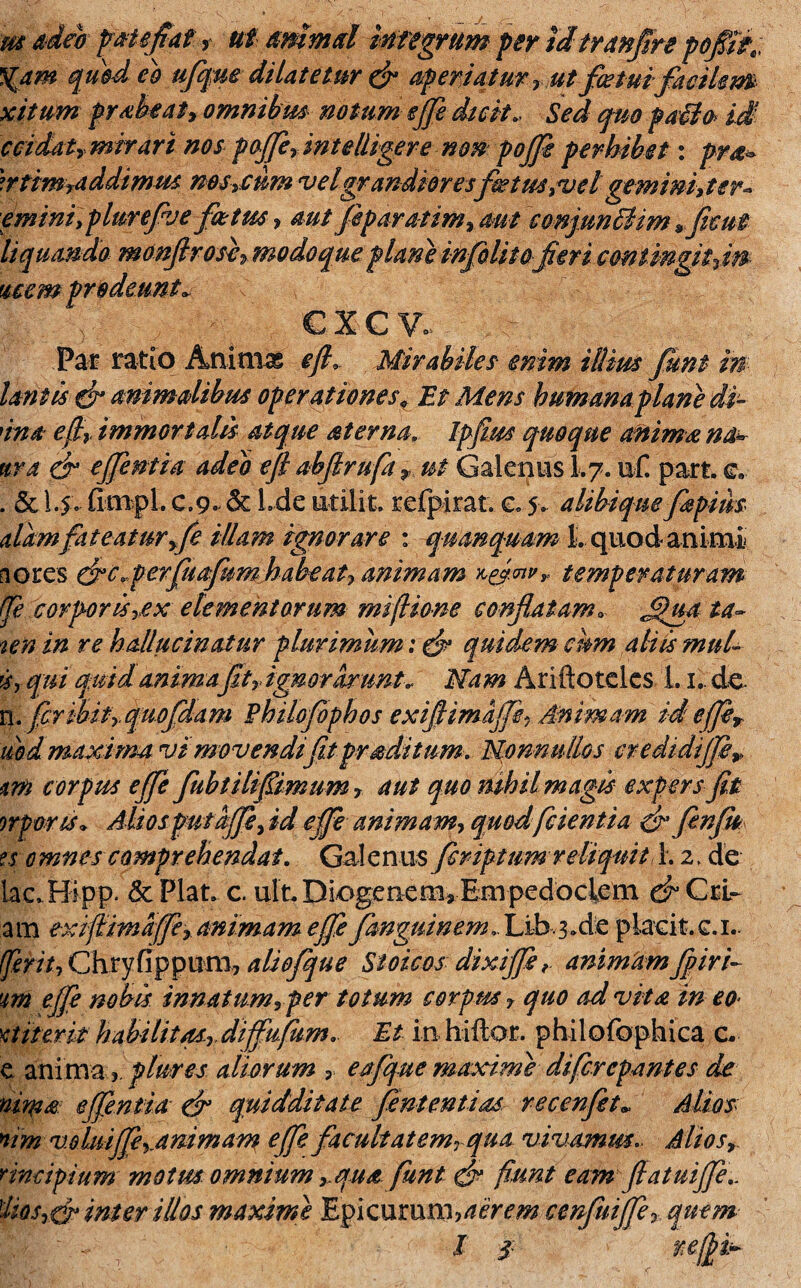 us adeò patefiat, ut animal integrum per id tranſire poſſit.
Nam quòd eò uſque dilatetur & aperiatur, ut fœtui facilem
xitum præbeat, omnibus notum eſſe dicit. Sed quo pacto id
ccidat, mirari nos poſſe, intelligere non poſſe perhibet: præ-
ertim, addimus nos, cùm vel grandiores fœtus, vel gemini, ter-
gemini, plureſve fœtus, aut ſeparatim, aut conjunctim, ſicut
liquando monſtrosè, modoque planè inſolito fieri contingit, in
ucem prodeunt.
CXCV.
Par ratio Animæ eſt. Mirabiles enim illius ſunt in
lantis & animalibus operationes. Et Mens humana planè di-
ina eſt, immortalis atque æterna. Ipſius quoque animæ na-
ura & eſſentia adeò eſt abſtruſa, ut Galenus l.7. uſ. part. c.
. & l.5. ſimpl. c.9. & l.de utilit. reſpirat. c. 5. alibique ſæpiùs
alàm fateatur, ſe illam ignorare: quanquam l. quod animi
nores &c. perſuaſum habeat, animam κρᾶσιν, temperaturam
ſſe corporis, ex elementorum miſtione conflatam. Qua ta-
nen in re hallucinatur plurimùm: & quidem cùm aliis mul-
is, qui quid anima ſit, ignorârunt. Nam Ariſtoteles l. 1. de
n. ſcribit, quoſdam Philoſophos exiſtimâſſe, Animam id eſſe,
uòd maxima vi movendi ſit præditum. Nonnullos credidiſſe,
am corpus eſſe ſubtiliſſimum, aut quo nihil magis expers ſit
orporis. Alios putâſſe, id eſſe animam, quod ſcientia & ſenſu
es omnes comprehendat. Galenus ſcriptum reliquit l. 2. de
lac. Hipp. & Plat. c. ult. Diogenem, Empedoclem & Cri-
am exiſtimâſſe, animam eſſe ſanguinem. Lib. 3. de placit. c.1.
ſſerit, Chryſippum, alioſque Stoicos dixiſſe, animam ſpiri-
um eſſe nobis innatum, per totum corpus, quo ad vitæ in eo
xtiterit habilitas, diffuſum. Et in hiſtor. philoſophica c.
e anima, plures aliorum, eaſque maximè diſcrepantes de
nimæ eſſentia & quidditate ſententias recenſet. Alios
nim voluiſſe, animam eſſe facultatem, qua vivamus. Alios,
rincipium motus omnium, quæ ſunt & fiunt eam ſtatuiſſe.
lios, & inter illos maximè Epicurum, aërem cenſuiſſe, quem
I 3 reſpi-